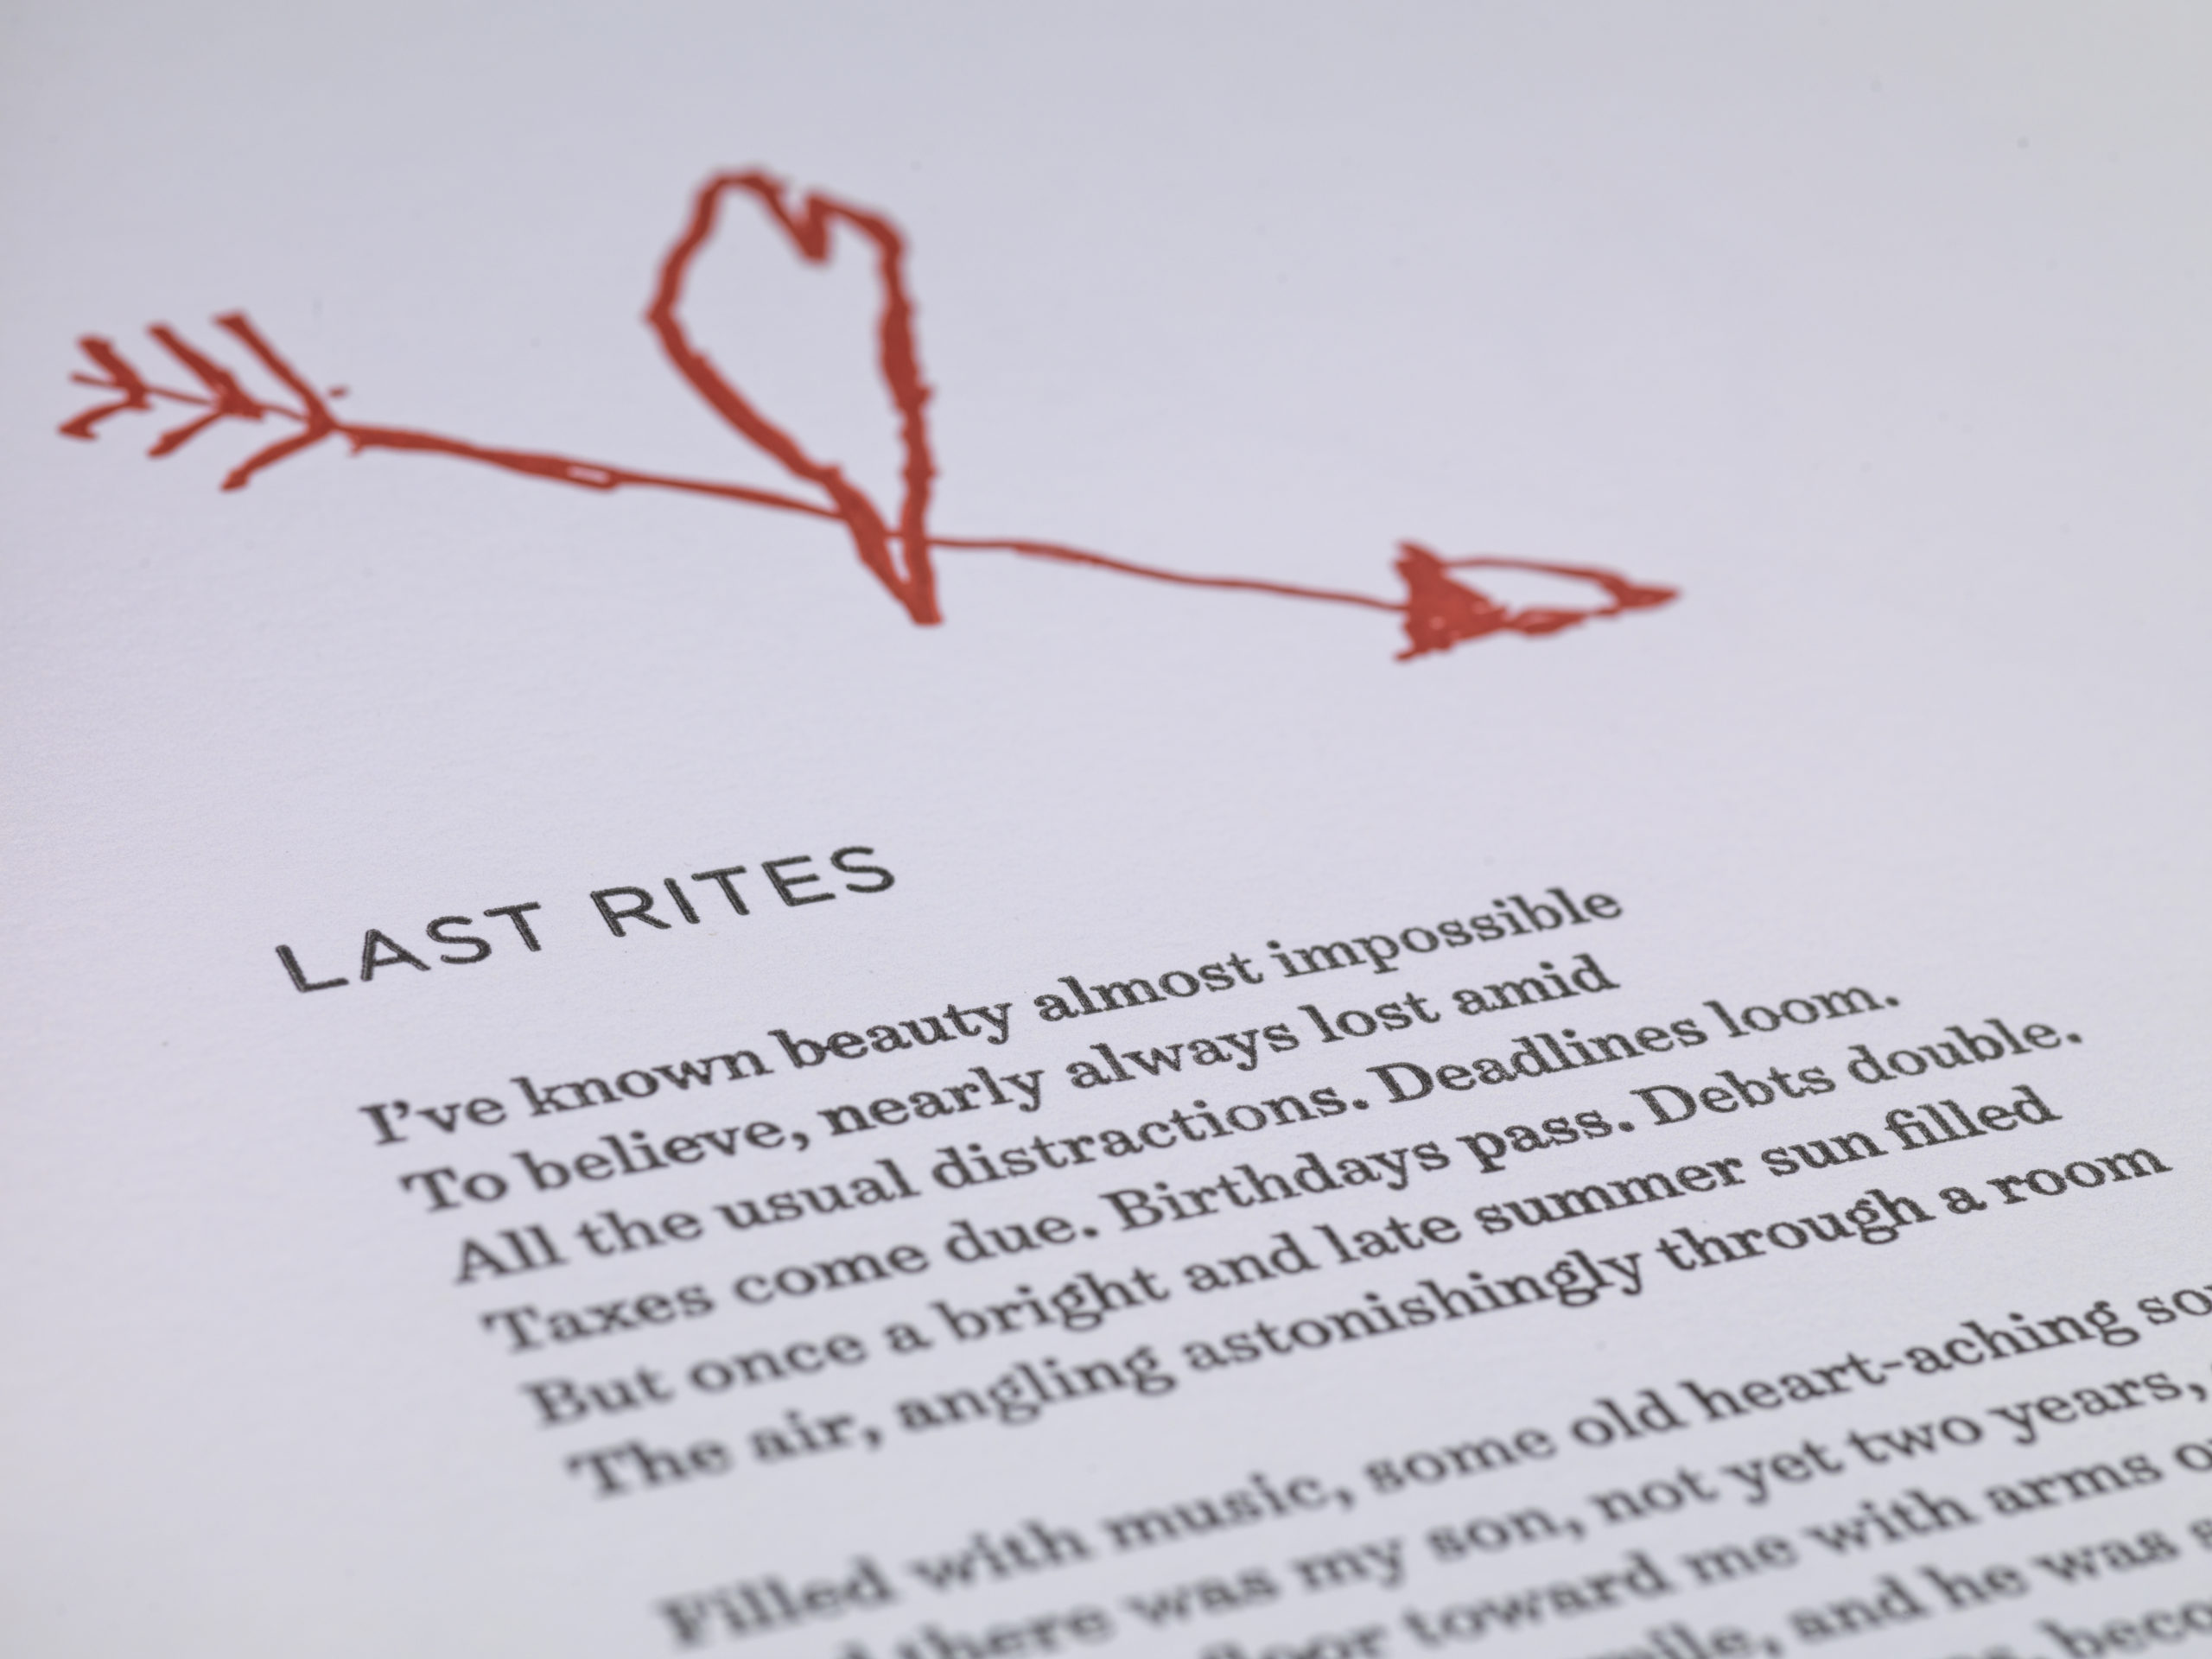 LAST RITES
I’ve known beauty almost impossible
To believe, nearly always lost amid
All the usual distractions. Deadlines loom.
Taxes come due. Birthdays pass. Debts double.
But once a bright and late summer sun filled
The air, angling astonishingly through a room
Filled with music, some old heart-aching
there was my son, not yet two years,
floor toward me with arms
and he was